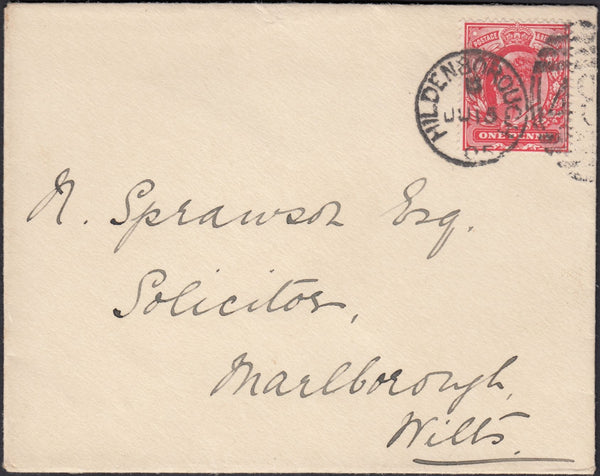 POSTAGE
ONE PENNY
HILDENBOROUGH
B
JU 15
05
N. Sprawson Esq.
Solicitor,
Marlborough,
Wilts.